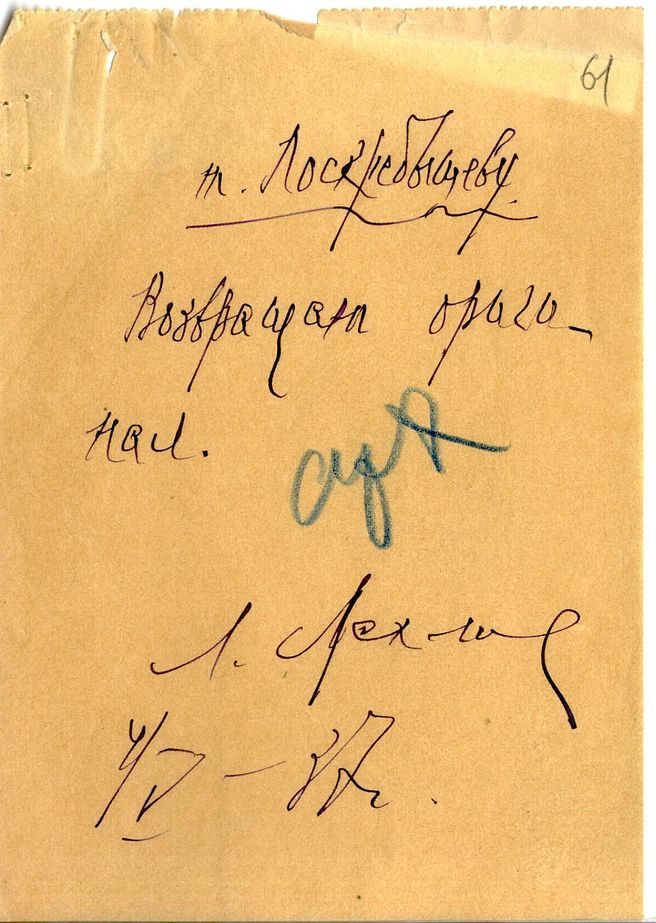 61
т. Поскребышеву.
Возвращаю ориги-
нал.
Л. Мехлис
4/V – 37 г.